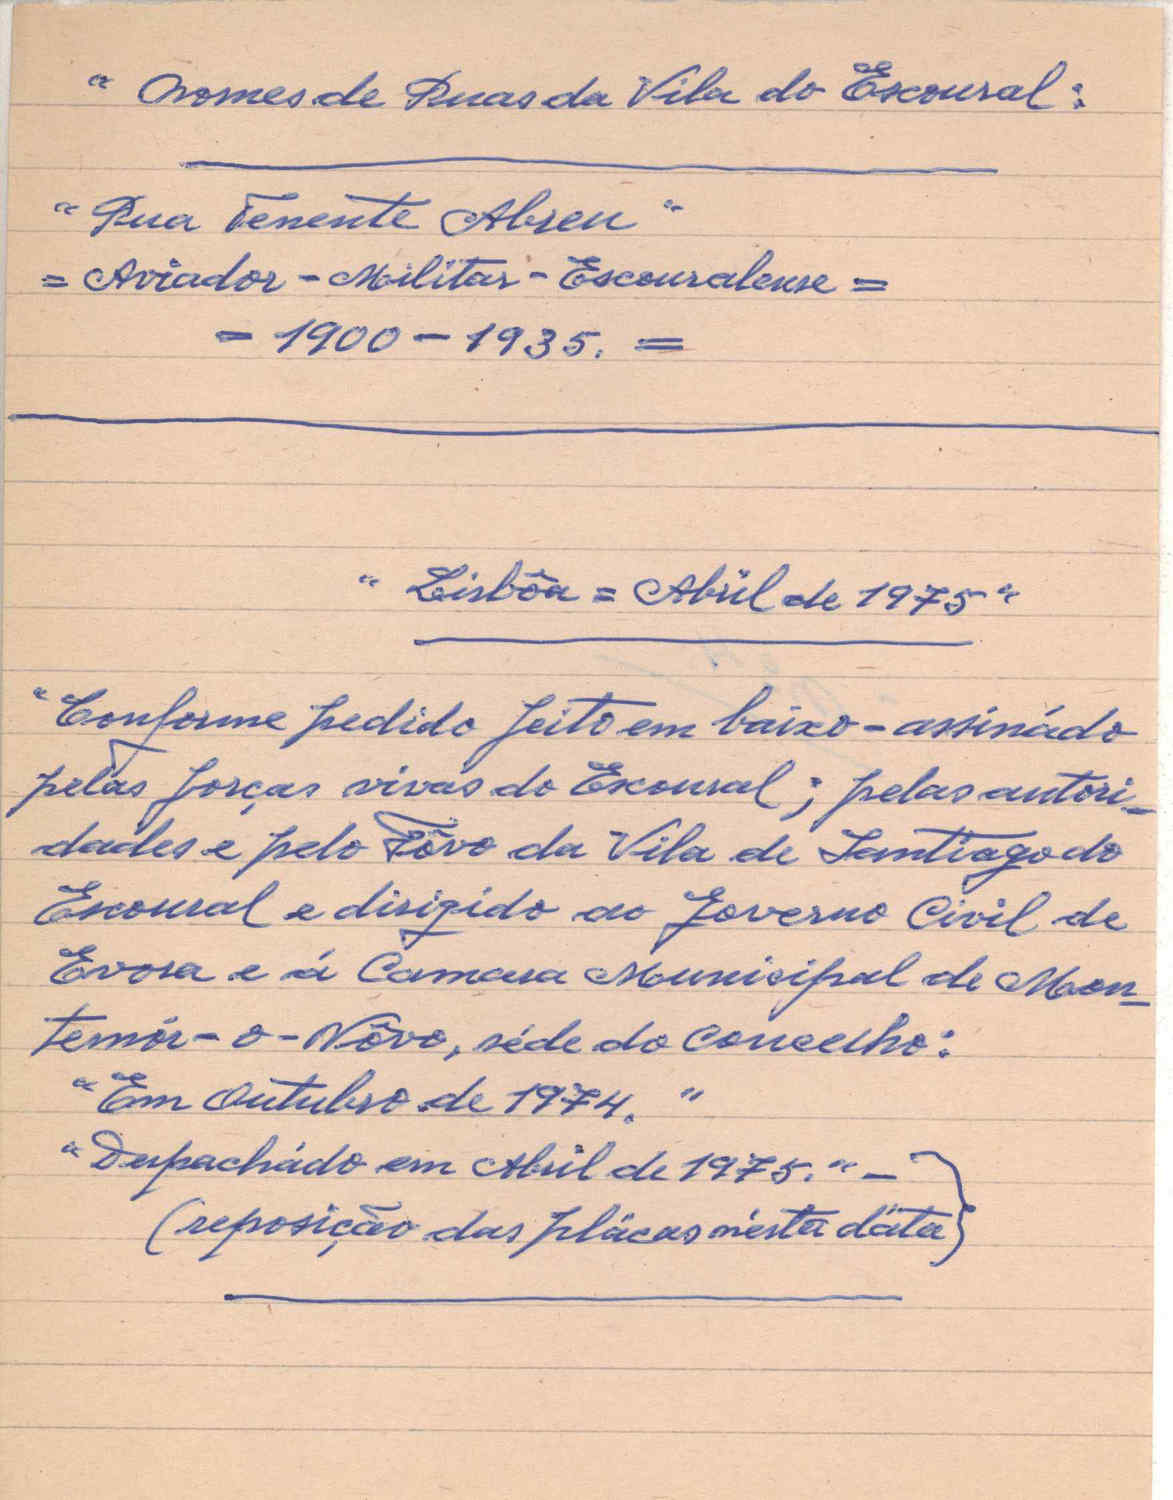 " Nomes de Ruas da Vila do Escoural:
" Rua Tenente Abreu "
= Aviador - Militar - Escouralense =
= 1900 - 1935. =
" Lisbôa = Abril de 1975 "
"Conforme pedido feito em baixo-assinádo
pelas forças vivas do Escoural; pelas autori-
dades e pelo Pôvo da Vila de Santiago do
Escoural e dirigido ao Governo Civil de
Evora e á Camara Municipal de Mon-
temór-o-Nôvo, séde do Concelho:
"Em Outubro de 1974. "
"Despachádo em Abril de 1975. " -
(reposição das plácas nésta dáta)